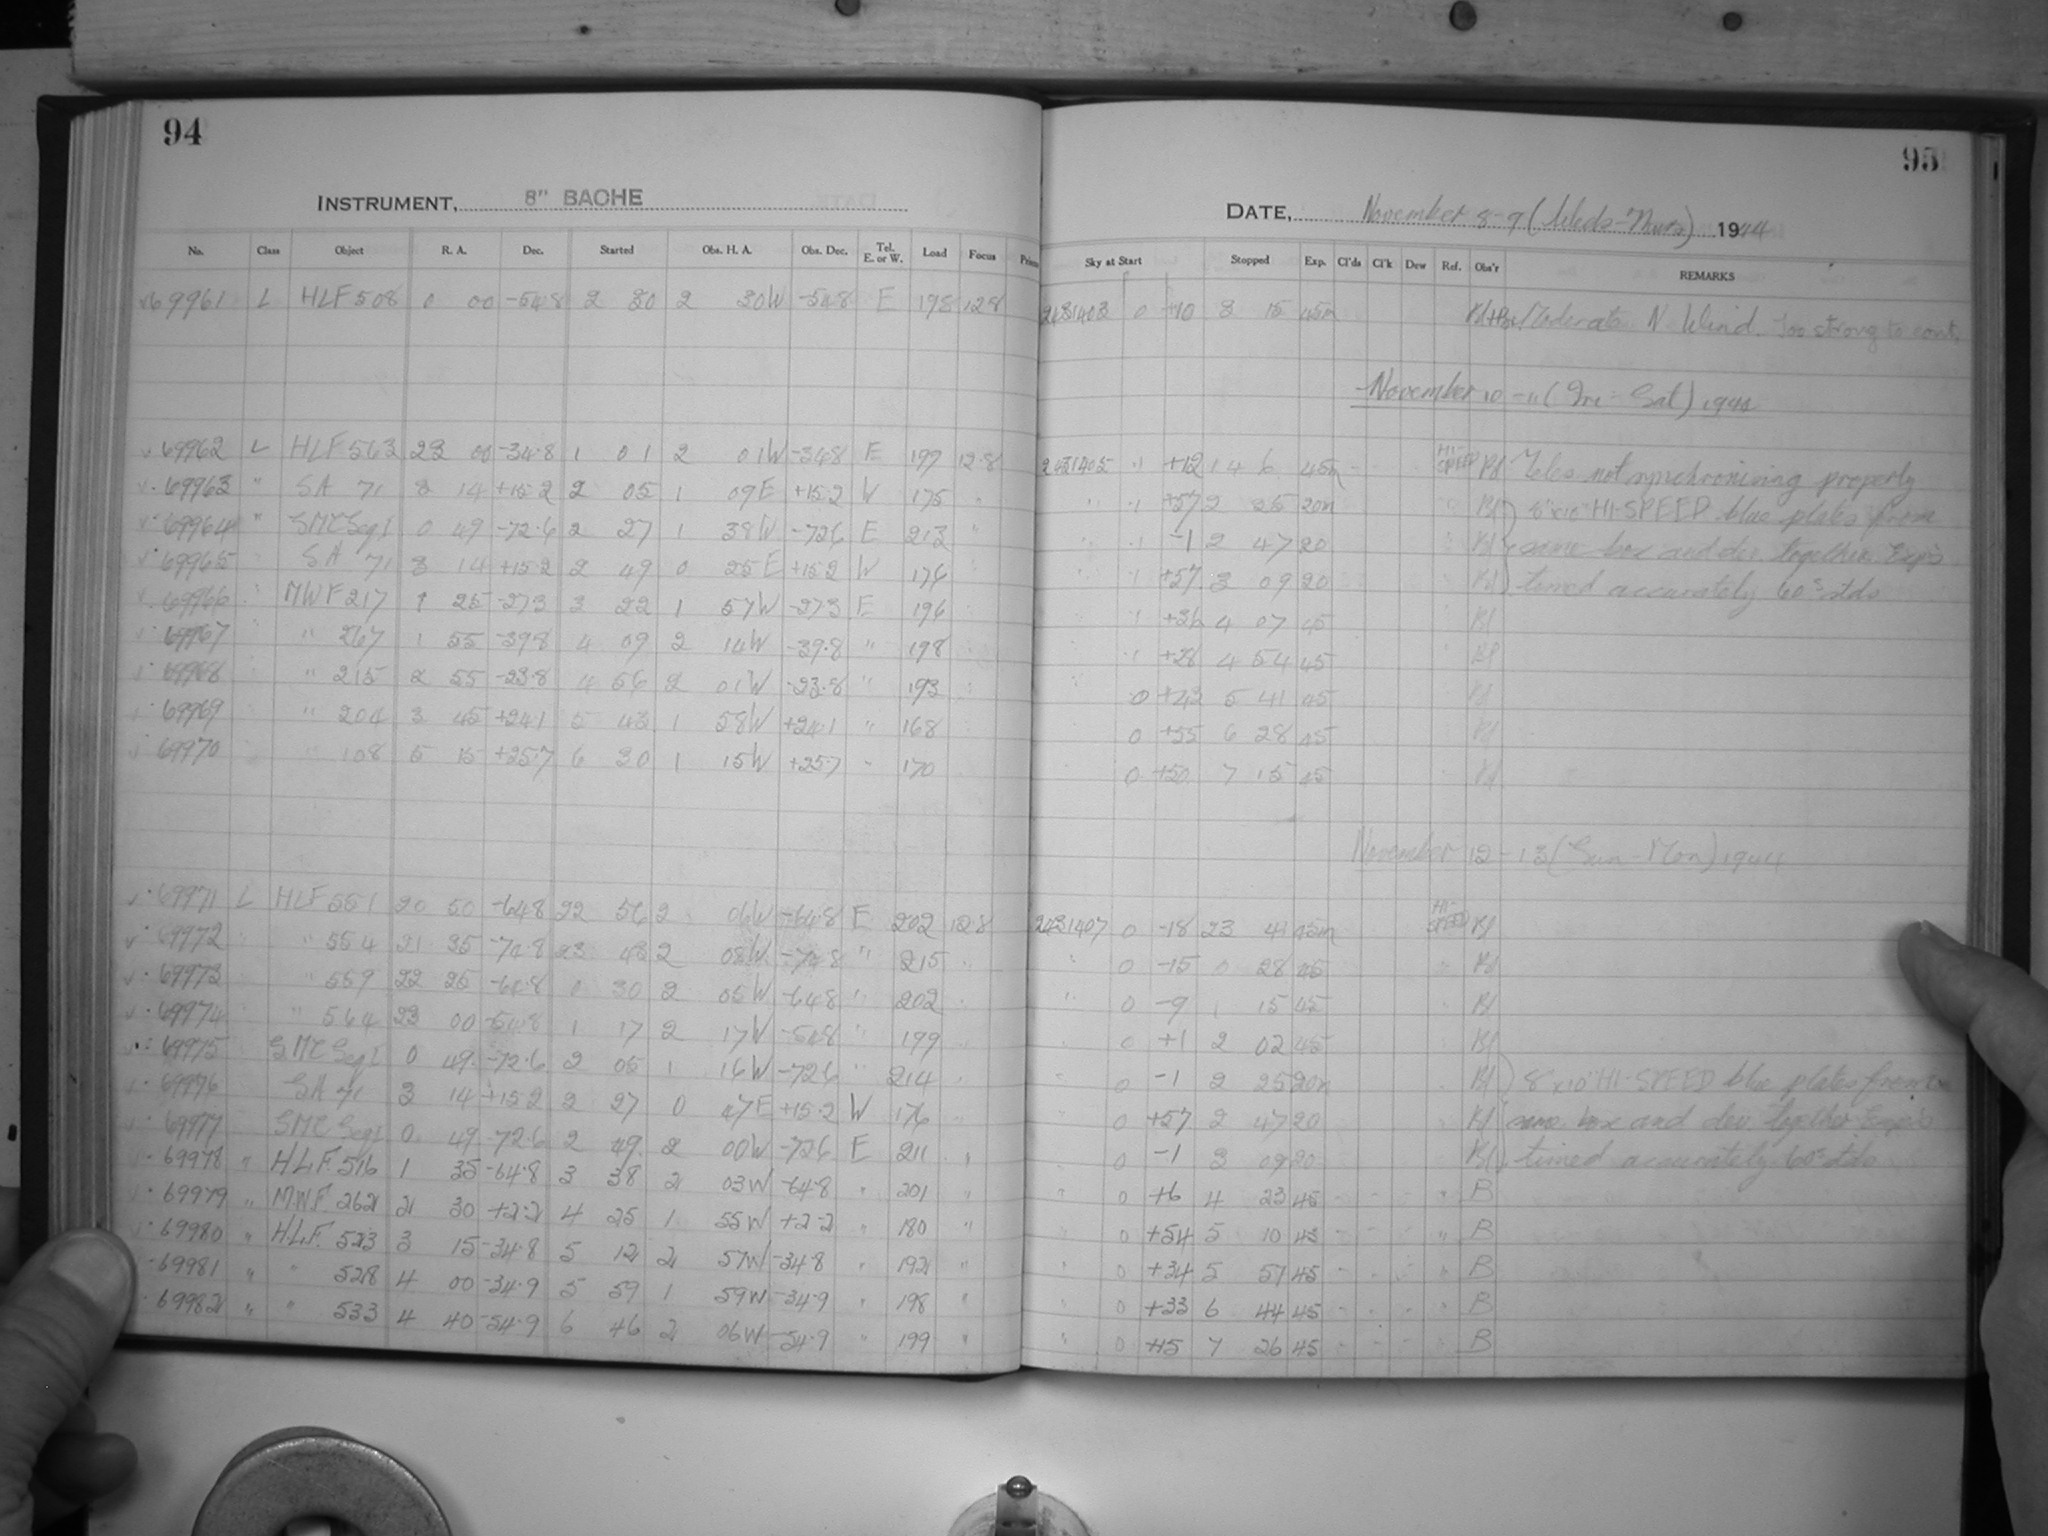 94
95
INSTRUMENT, 8" BACHE
DATE, November 8-9 (Weds-Thurs) 1944
No. Class Object R. A. Dec. Started Obs. H. A. Obs. Dec. Tel. E. or W. Load Focus Sky at Start Stopped Exp. Cl'ds Cl'k Dew Ref. Obs'r REMARKS
69961 L HLF 508 0 00 -54.8 2 30 2 30W -54.8 E 198 12.8 2431403 0 +10 3 15 45m Moderate N. Wind. Too strong to cont.
November 10-11 (Fri-Sat) 1944
69962 L HLF 563 23 00 -34.8 1 01 2 01W -34.8 E 197 12.8 2431405 .1 +12 1 46 45m HI-SPEED Bl Teles not synchronizing properly
69963 " SA 71 3 14 +15.2 2 05 1 09E +15.2 W 175 " " .1 +57 2 25 20m " Bl 8"x10" HI-SPEED blue plates from
69964 " SMC Seq 1 0 49 -72.6 2 27 1 38W -72.6 E 213 " " .1 -1 2 47 20 " Bl same box and dev. together. Exp's
69965 " SA 71 3 14 +15.2 2 49 0 25E +15.2 W 176 " .1 +57 3 09 20 " Bl timed accurately 60s stds
69966 " MWF 217 1 25 -27.3 3 22 1 57W -27.3 E 196 " .1 +36 4 07 45 " Bl
69967 " " 267 1 55 -39.8 4 09 2 14W -39.8 " 198 " .1 +28 4 54 45 " Bl
69968 " " 215 2 55 -23.8 4 56 2 01W -23.8 " 193 " 0 +43 5 41 45 Bl
69969 " " 204 3 45 +24.1 5 43 1 58W +24.1 " 168 0 +55 6 28 45 Bl
69970 " 108 5 15 +25.7 6 30 1 15W +25.7 " 170 0 +50 7 15 45 Bl
November 12-13 (Sun-Mon) 1944
69971 L HLF 551 20 50 -64.8 22 56 2 06W -64.8 E 202 12.8 2431407 0 -18 23 41 45m HI-SPEED Bl
69972 " " 554 21 35 -74.8 23 43 2 08W -74.8 " 215 " " 0 -15 0 28 45 " Bl
69973 " 559 22 25 -64.8 0 30 2 05W -64.8 " 202 " " 0 -9 1 15 45 " Bl
69974 " " 564 23 00 -54.8 1 17 2 17W -54.8 " 199 " " 0 +1 2 02 45 " Bl
69975 SMC Seq 1 0 49 -72.6 2 05 1 16W -72.6 " 214 " " 0 -1 2 25 20m " Bl 8"x10" HI-SPEED blue plates from
69976 SA 71 3 14 +15.2 2 27 0 47E +15.2 W 176 " " 0 +57 2 47 20 " Bl same box and dev. together. Exp's
69977 SMC Seq 1 0 49 -72.6 2 49 2 00W -72.6 E 211 " " 0 -1 3 09 20 " Bl timed accurately 60s stds
69978 " HLF. 516 1 35 -64.8 3 38 2 03W -64.8 " 201 " " 0 +6 4 23 45 " B
69979 " MWF. 262 2 30 +2.2 4 25 1 55W +2.2 " 180 " " 0 +54 5 10 45 " B
69980 " HLF. 523 3 15 -34.8 5 12 2 57W -34.8 " 192 " " 0 +34 5 57 45 " B
69981 " " 528 4 00 -34.9 5 59 1 59W -34.9 " 198 " " 0 +33 6 44 45 " B
69982 " " 533 4 40 -54.9 6 46 2 06W -54.9 " 199 " " 0 +15 7 26 45 " B